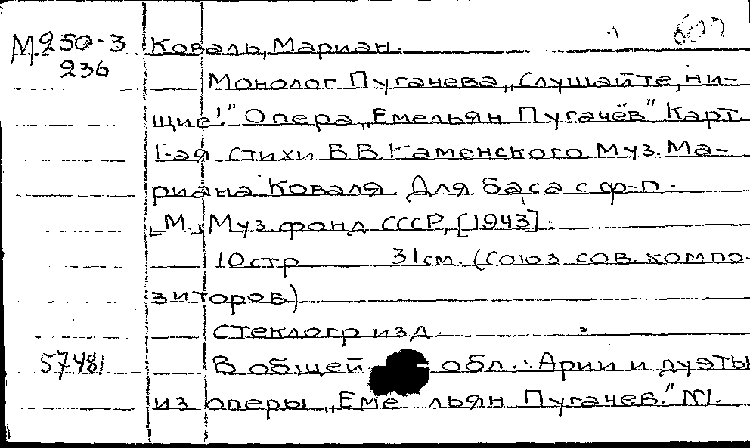 М.250-3 Коваль, Мариан.
236
Монолог Пугачева „Слушайте, ни-
щие!" Опера „Емельян Пугачёв" Карт.
1-ая стихи В.В.Каменского Муз. Ма-
риана Коваля Для баса с ф-п.
[М.] Муз. фонд СССР, [1943].
10 стр 31 см. (Союз сов. компо-
зиторов)
Стеклогр изд
57481 В общей обл.: Арии и дуэты
из оперы „Емельян Пугачев." №1.